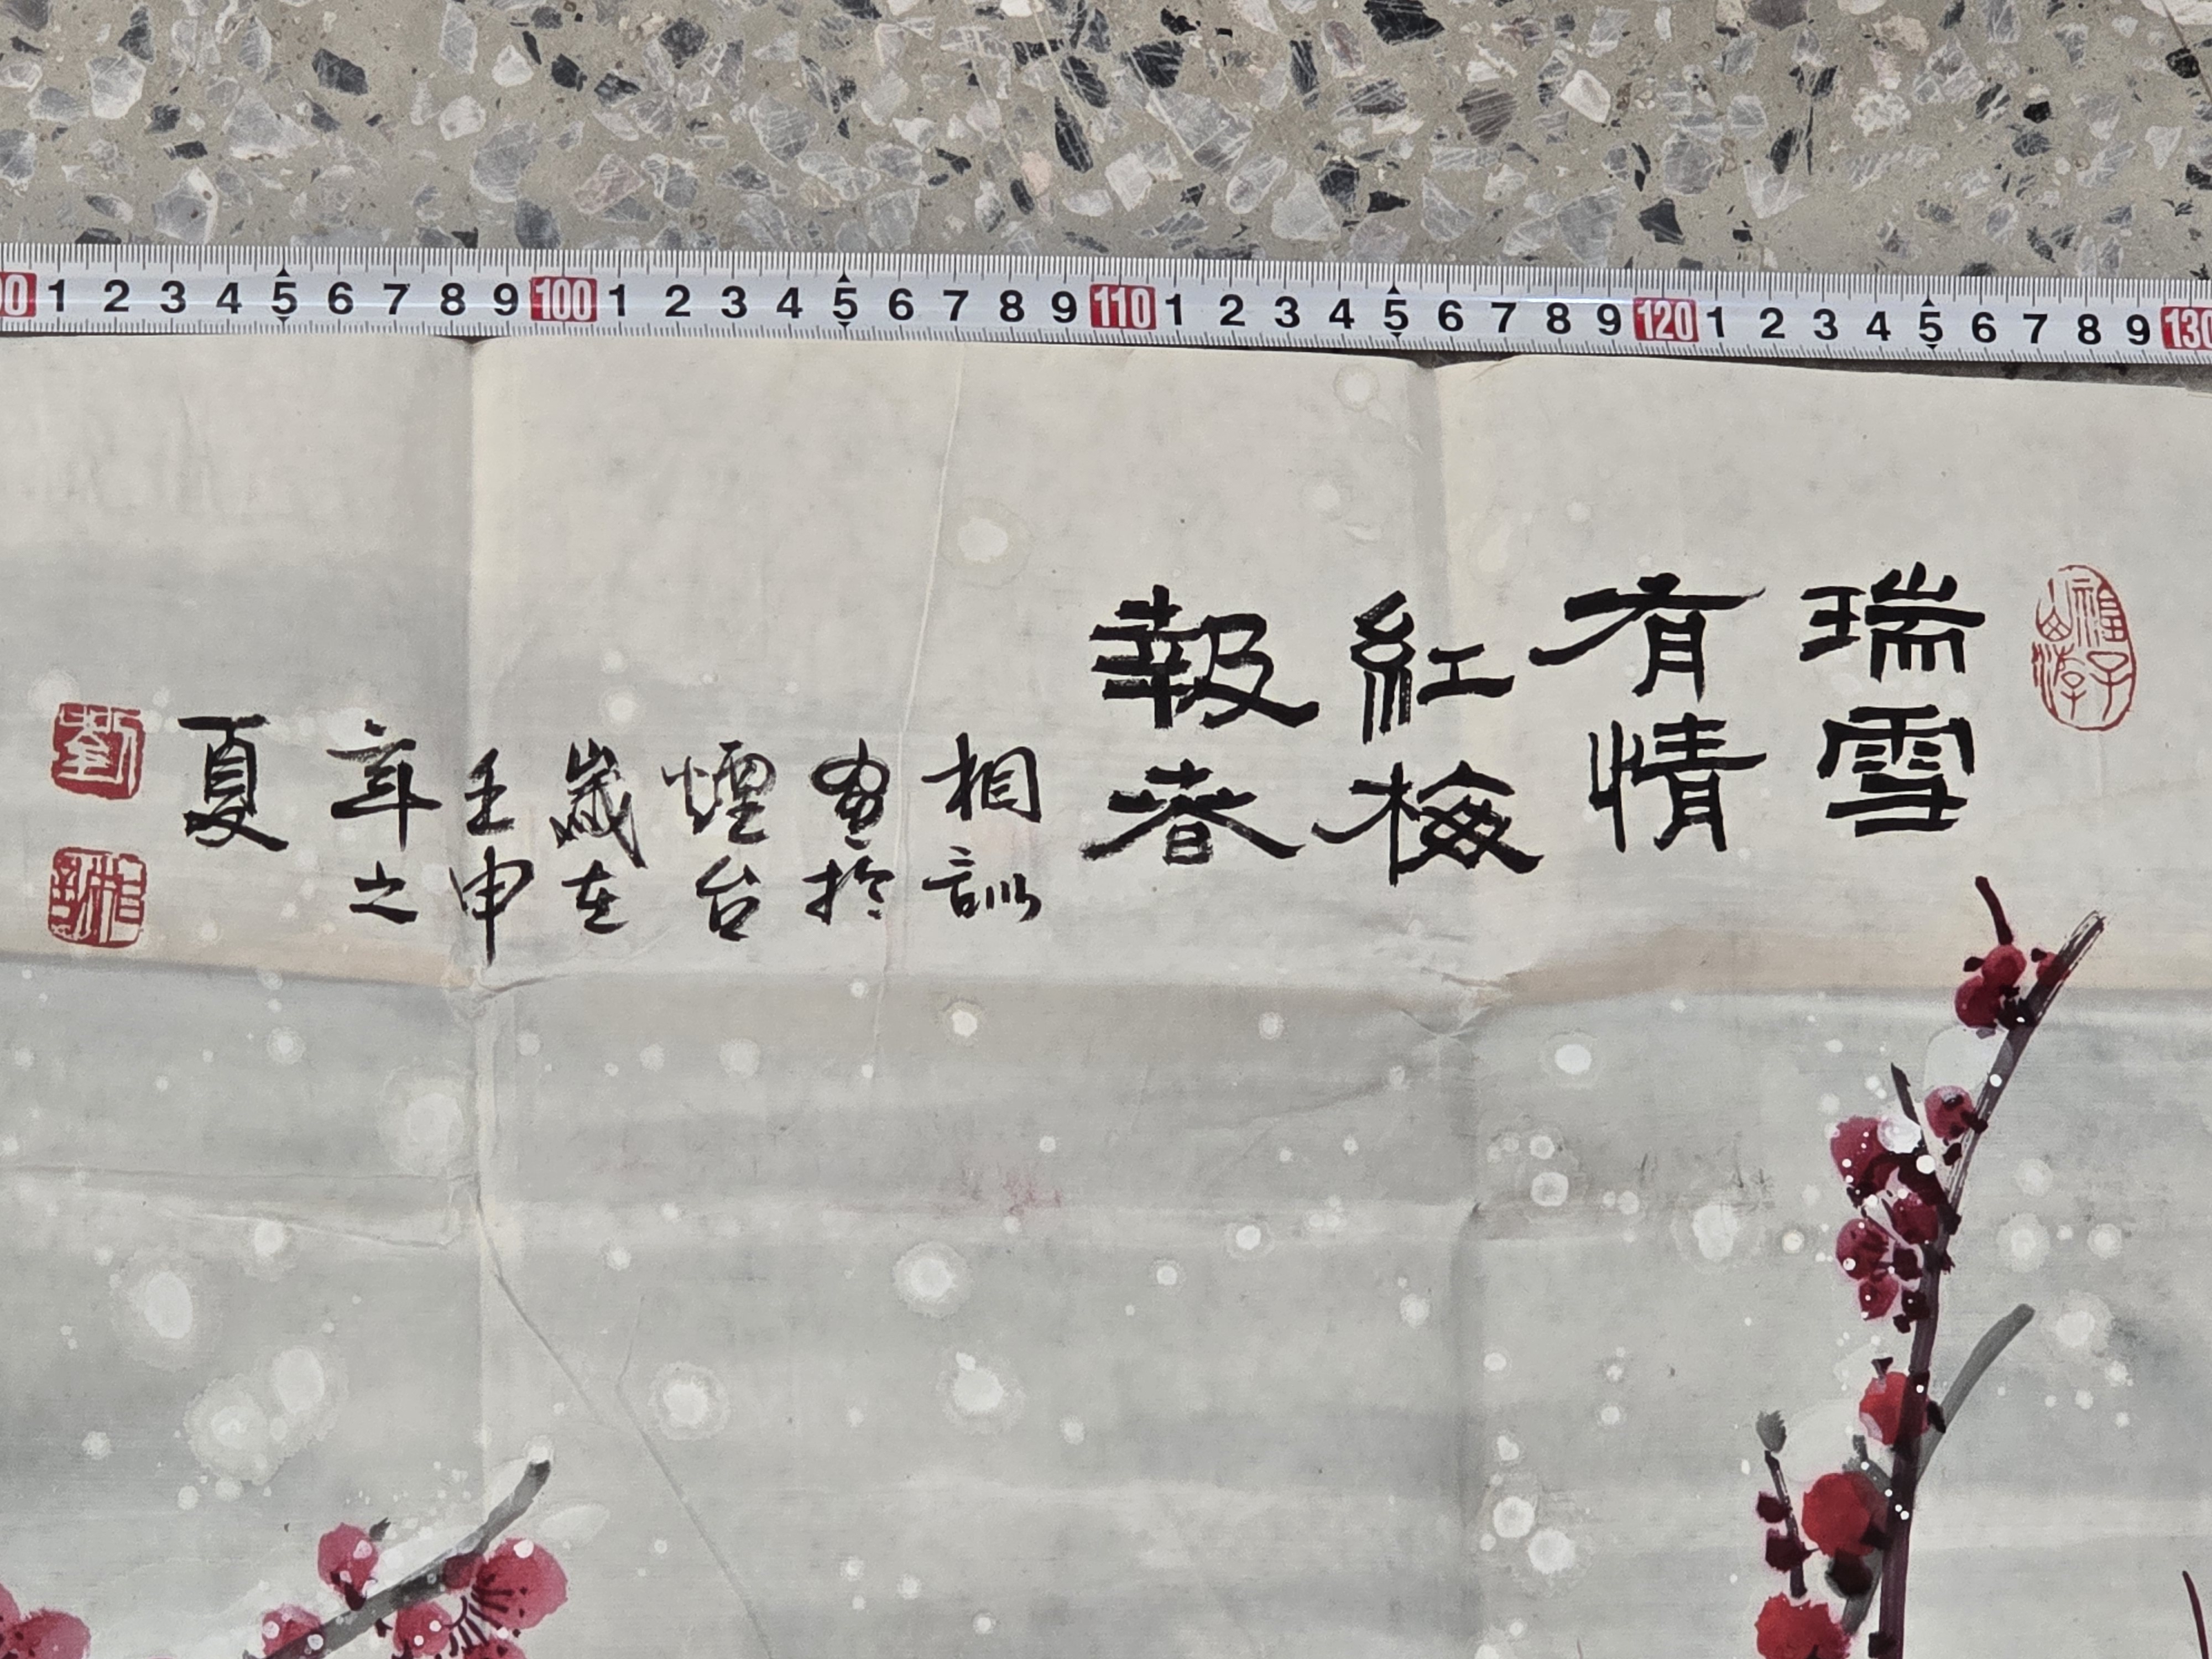 瑞雪
有情
紅梅
報春
相訓
畫於
煙台
歲在
壬申
年之
夏
劉
相訓
00 1 2 3 4 5 6 7 8 9 100 1 2 3 4 5 6 7 8 9 110 1 2 3 4 5 6 7 8 9 120 1 2 3 4 5 6 7 8 9 130